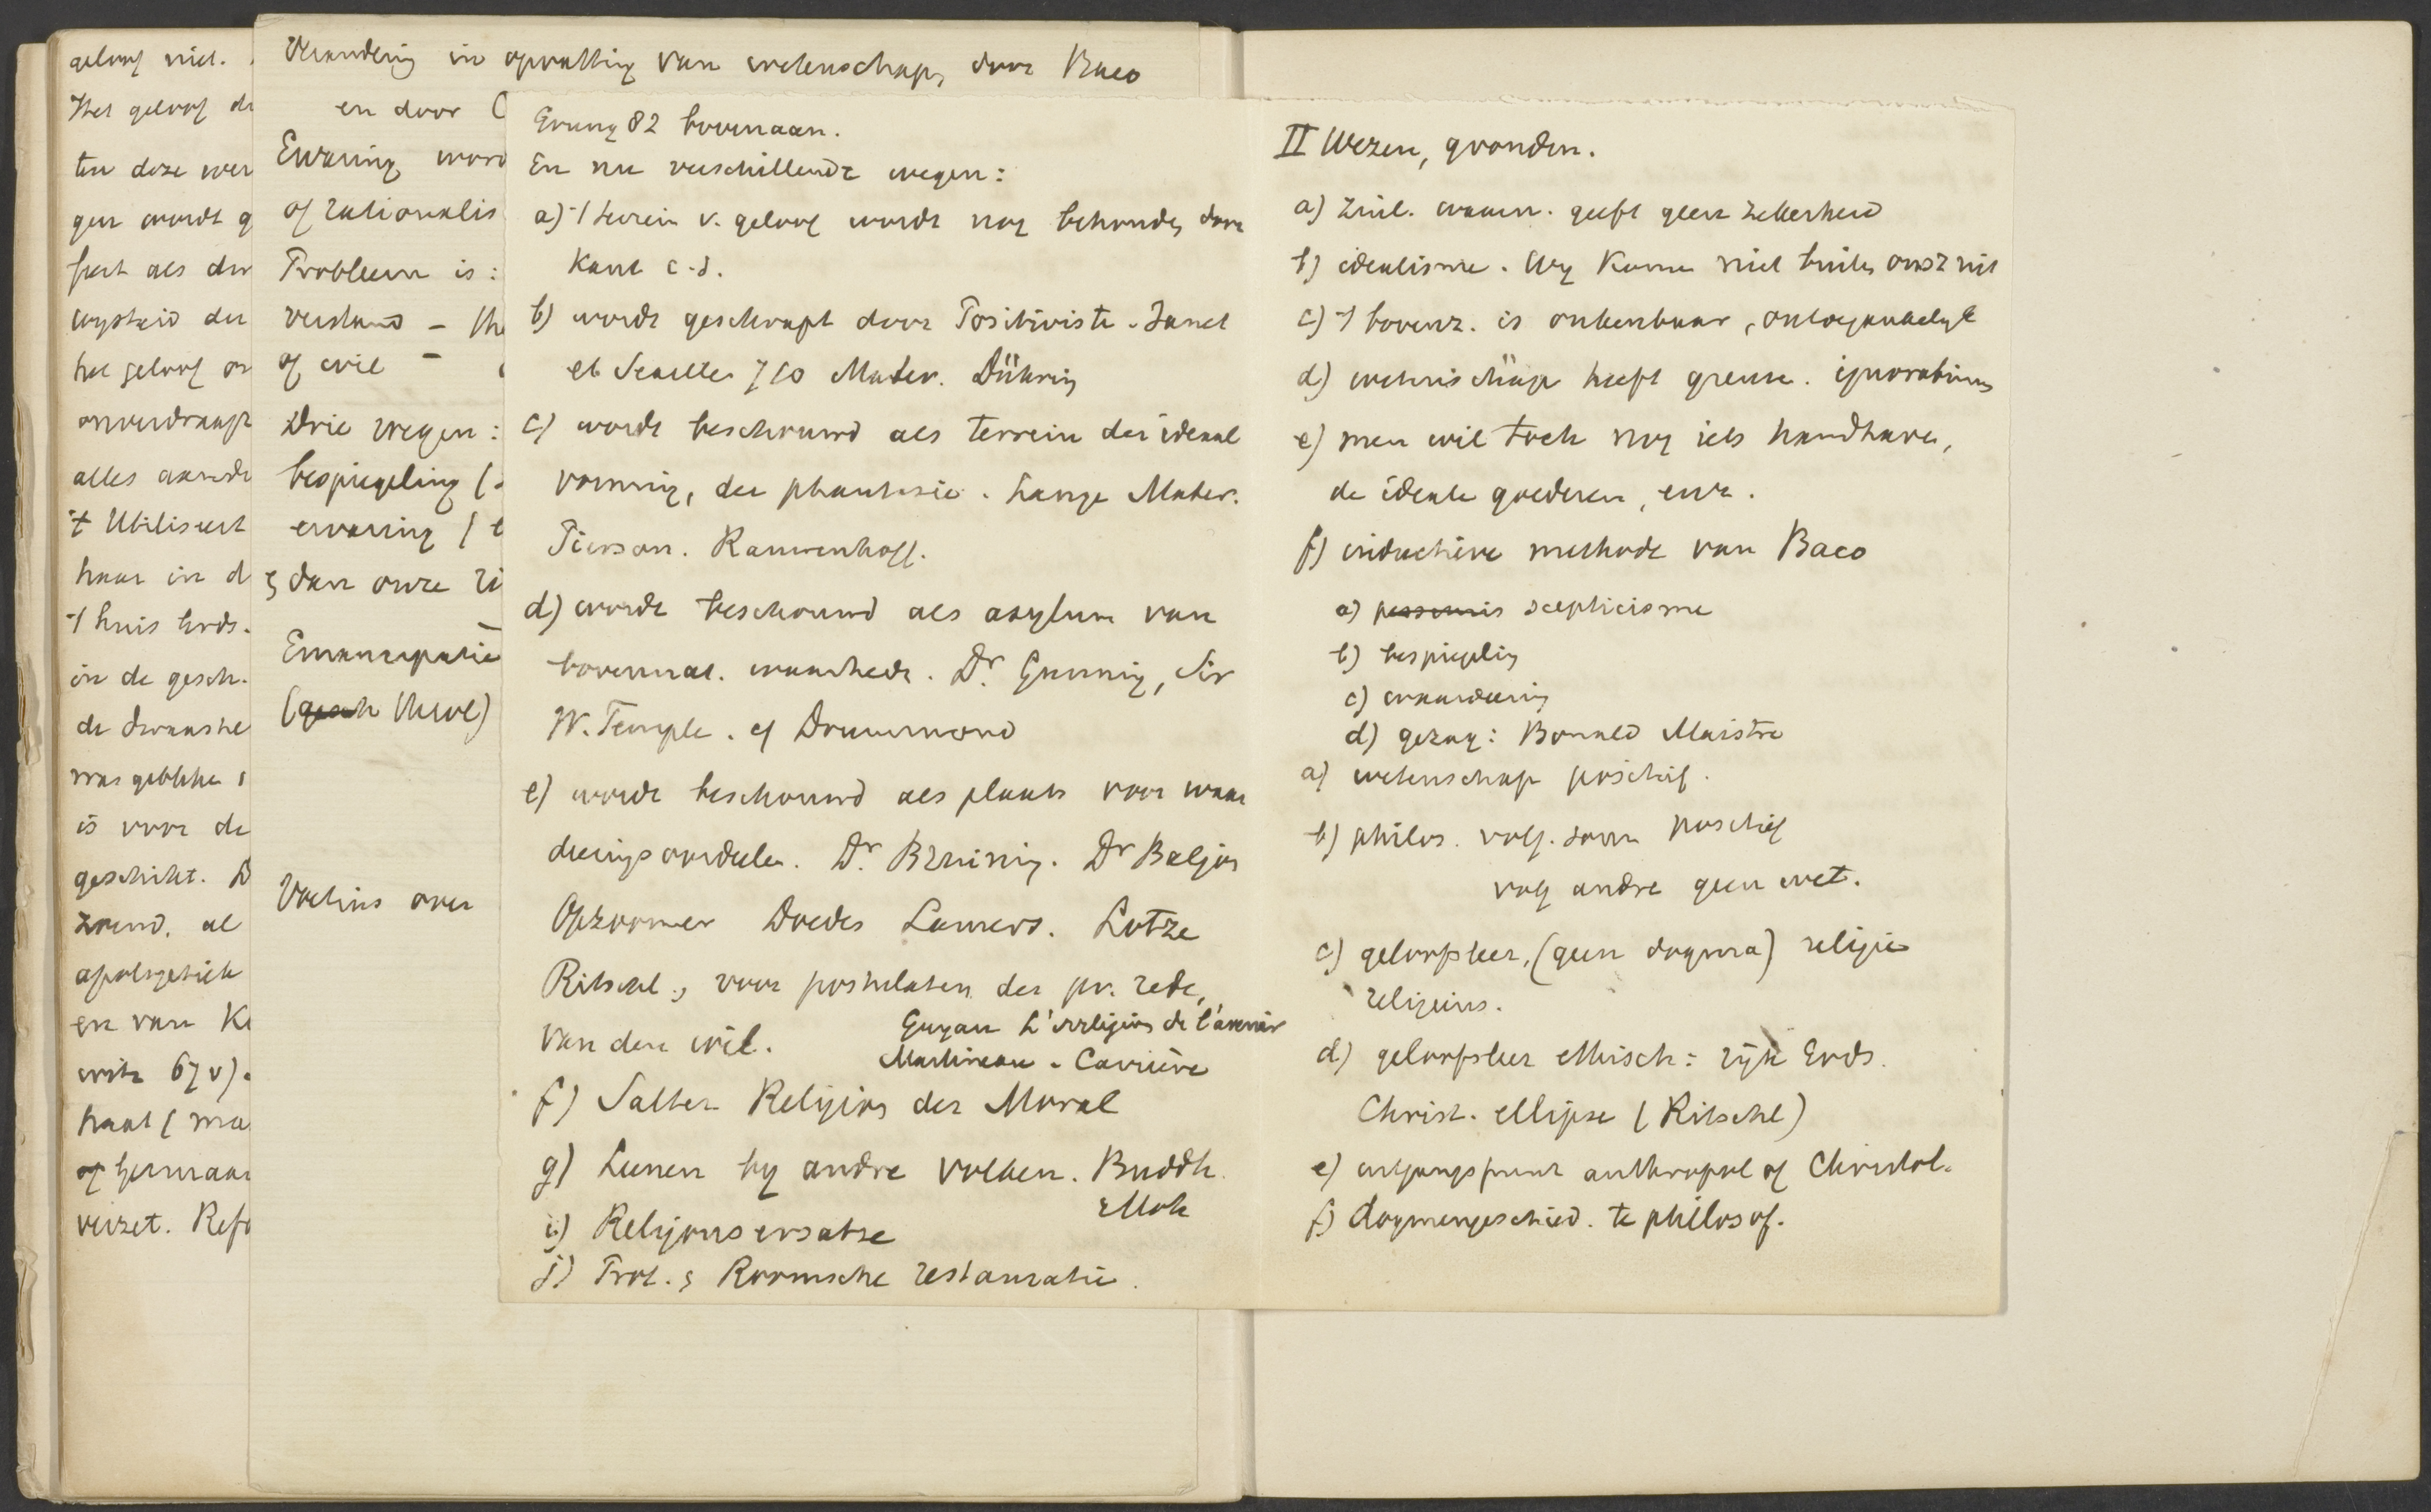 geloof niet.
Het geloof de
ten deze wer
gen wordt g
feit als der
wijsheid der
het geloof on
onverdraagz
alles aande
't Utiliseert
haar in d
't huis Gods.
in de gesch.
de dwaashe
was gebleken
is voor de
geschikt. D
zoend. al
apologetiek
en van K
67 v).
haal (ma
of hermaan
verzet. Refo
Verandering in opvatting van wetenschap, door Baco
en door C
Ervaring word
of rationalis
Probleem is:
verstand – 
of wil –
Drie wegen:
bespiegeling (
ervaring (
dan onze
Emancipatie
(gesch
Voetius over
bovenaan.
En nu verschillende wegen:
a) 't terrein v. geloof wordt nog behouden door
Kant c.s.
b) wordt geschrapt door Positiviste. Janet
et Séailles 710 Mater. Dühring
c) wordt beschouwd als terrein der ideaal
vorming, der phantasie. Lange Mater.
Pierson. Rauwenhoff.
d) wordt beschouwd als asylum van
bovennat. waarheden. Dr. Gunning, Sir
W. Temple. cf Drummond
e) wordt beschouwd als plaats voor waar
deeringsoordeelen. Dr. Bruining. Dr Baljon
Opzoomer Doedes Lamers. Lotze
Ritschl, voor postulaten der pr. rede,
van den wil.
Guyau L'irreligion de l'avenir
Martineau - Carrière
f) Salter Religion der Moral
g) Leenen by andre volken. Buddh.
Moh
i) Religionsersatze
j) Prot. & Roomsche restauratie.
II Wezen, gronden.
a) Zinl. waarn. geeft geen zekerheid
b) idealisme. Wy komen niet buiten onsz uit
c) 't bovenz. is onkenbaar, ontoegankelyk
d) wetenschap heeft grenzen. ignorabimus
e) men wil toch nog iets handhaven,
de ideale goederen, enz.
f) inductieve methode van Baco
a) pessimis scepticisme
b) bespiegeling
c) waardeering
d) gezag: Bonald Maistre
a) wetenschap positief.
b) philos. volg. somm positief
volg andre geen wet.
c) geloofsleer, (geen dogma) religie
religieus.
d) geloofsleer ethisch: ryk Gods.
Christ. ellipse (Ritschl)
e) uitgangspunt anthropol of Christol.
f) dogmengeschied. te philosof.